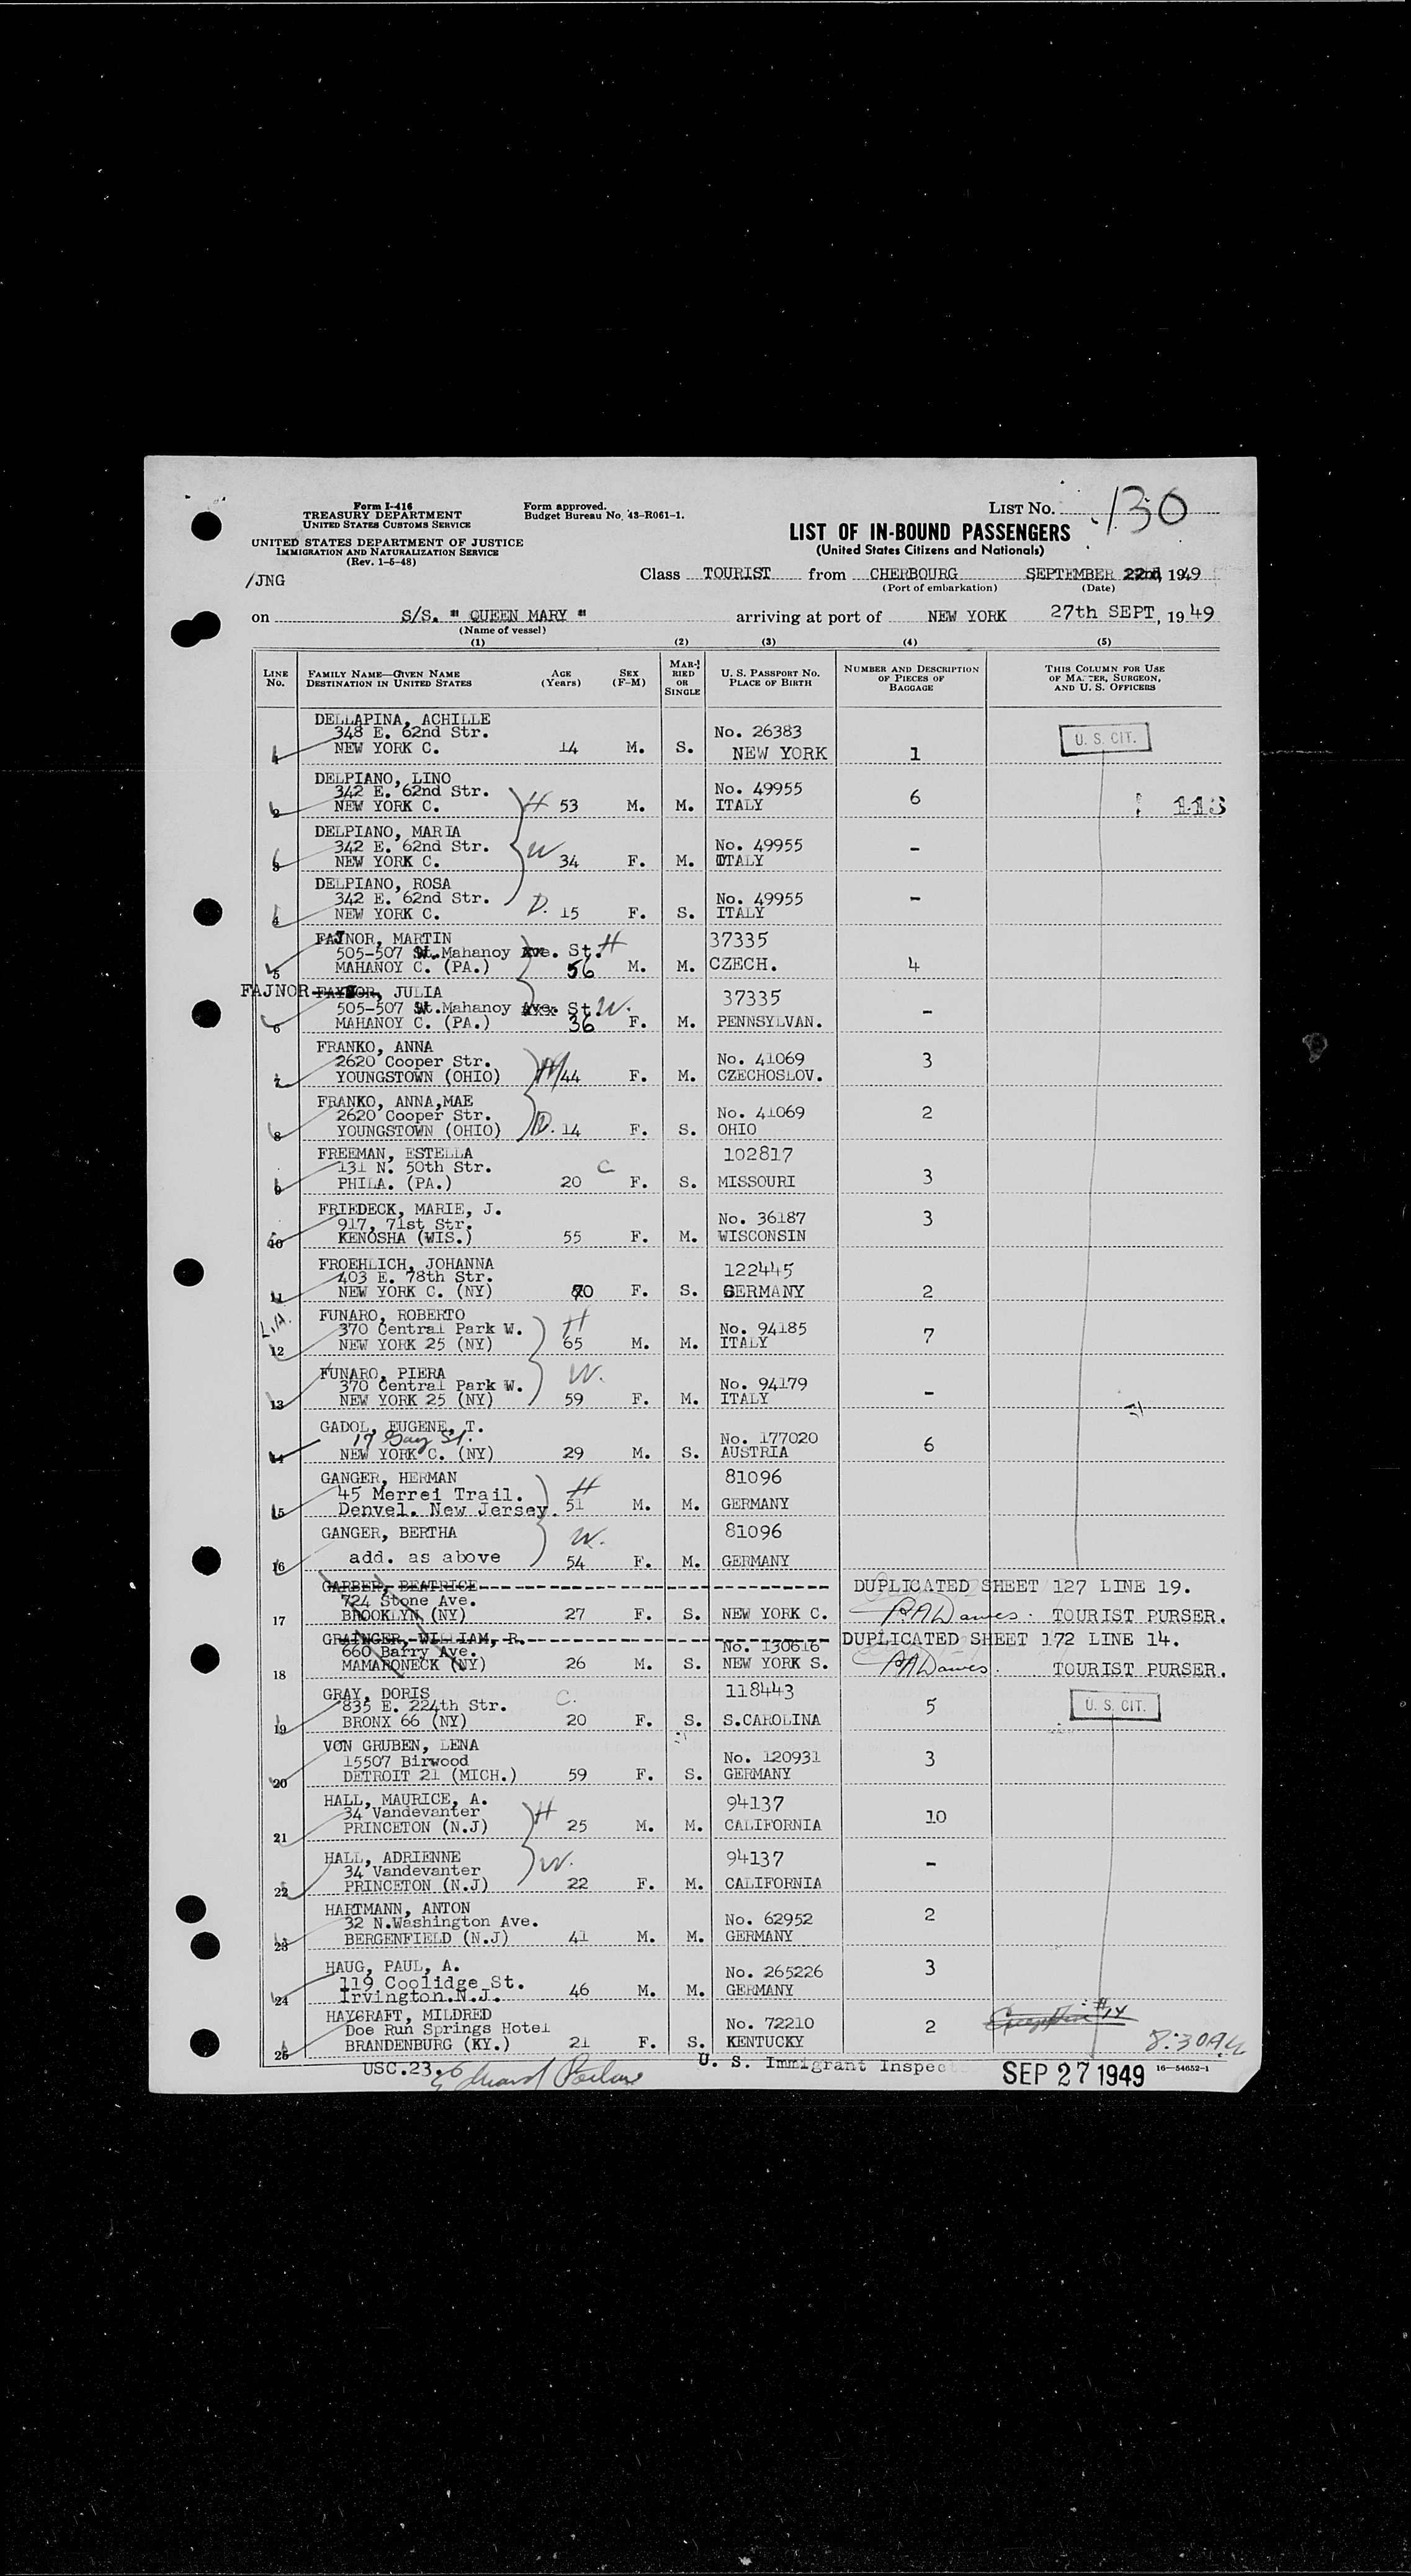 Form I-416
TREASURY DEPARTMENT
UNITED STATES CUSTOMS SERVICE
UNITED STATES DEPARTMENT OF JUSTICE
IMMIGRATION AND NATURALIZATION SERVICE
(Rev. 1-5-48)
/JNG
Form approved.
Budget Bureau No. 43-R061-1.
LIST No. 130
LIST OF IN-BOUND PASSENGERS
(United States Citizens and Nationals)
Class TOURIST from CHERBOURG SEPTEMBER 22nd, 1949
(Port of embarkation) (Date)
on S/S. " QUEEN MARY " arriving at port of NEW YORK 27th SEPT, 1949
(Name of vessel)
(1) (2) (3) (4) (5)
LINE No. FAMILY NAME—GIVEN NAME DESTINATION IN UNITED STATES AGE (Years) SEX (F-M) MARRIED OR SINGLE U. S. PASSPORT No. PLACE OF BIRTH NUMBER AND DESCRIPTION OF PIECES OF BAGGAGE THIS COLUMN FOR USE OF MASTER, SURGEON, AND U. S. OFFICERS
DELLAPINA, ACHILLE
348 E. 62nd Str. No. 26383 U. S. CIT.
1 NEW YORK C. 14 M. S. NEW YORK 1
DELPIANO, LINO
342 E. 62nd Str. No. 49955 6
2 NEW YORK C. H 53 M. M. ITALY 113
DELPIANO, MARIA
342 E. 62nd Str. W No. 49955 -
3 NEW YORK C. 34 F. M. ITALY
DELPIANO, ROSA
342 E. 62nd Str. No. 49955 -
4 NEW YORK C. D. 15 F. S. ITALY
FAJNOR, MARTIN 37335
505-507 W. Mahanoy Ave. St. H
5 MAHANOY C. (PA.) 56 M. M. CZECH. 4
FAJNOR, JULIA 37335
505-507 W. Mahanoy Ave. St. W.
6 MAHANOY C. (PA.) 36 F. M. PENNSYLVAN. -
FRANKO, ANNA
2620 Cooper Str. No. 41069 3
7 YOUNGSTOWN (OHIO) M 44 F. M. CZECHOSLOV.
FRANKO, ANNA,MAE
2620 Cooper Str. No. 41069 2
8 YOUNGSTOWN (OHIO) D. 14 F. S. OHIO
FREEMAN, ESTELLA 102817
131 N. 50th Str. C
9 PHILA. (PA.) 20 F. S. MISSOURI 3
FRIEDECK, MARIE, J.
917, 71st Str. No. 36187 3
10 KENOSHA (WIS.) 55 F. M. WISCONSIN
FROEHLICH, JOHANNA 122445
403 E. 78th Str.
11 NEW YORK C. (NY) 70 F. S. GERMANY 2
L.A.
FUNARO, ROBERTO H
370 Central Park W. No. 94185 7
12 NEW YORK 25 (NY) 65 M. M. ITALY
FUNARO, PIERA W.
370 Central Park W. No. 94179 -
13 NEW YORK 25 (NY) 59 F. M. ITALY
GADOL, EUGENE, T.
17 Gay St. No. 177020 6
14 NEW YORK C. (NY) 29 M. S. AUSTRIA
GANGER, HERMAN 81096
45 Merrei Trail. H
15 Denvel. New Jersey. 51 M. M. GERMANY
GANGER, BERTHA W. 81096
16 add. as above 54 F. M. GERMANY
GARBER, BEATRICE DUPLICATED SHEET 127 LINE 19.
724 Stone Ave.
17 BROOKLYN (NY) 27 F. S. NEW YORK C. RADawes. TOURIST PURSER.
GRAINGER, WILLIAM, R. DUPLICATED SHEET 172 LINE 14.
660 Barry Ave. No. 130616
18 MAMARONECK (NY) 26 M. S. NEW YORK S. RADawes. TOURIST PURSER.
GRAY, DORIS C. 118443
835 E. 224th Str. 5 U. S. CIT.
19 BRONX 66 (NY) 20 F. S. S.CAROLINA
VON GRUBEN, LENA
15507 Birwood No. 120931 3
20 DETROIT 21 (MICH.) 59 F. S. GERMANY
HALL, MAURICE, A. 94137
34 Vandevanter H 10
21 PRINCETON (N.J) 25 M. M. CALIFORNIA
HALL, ADRIENNE 94137
34 Vandevanter W. -
22 PRINCETON (N.J) 22 F. M. CALIFORNIA
HARTMANN, ANTON
32 N.Washington Ave. No. 62952 2
23 BERGENFIELD (N.J) 41 M. M. GERMANY
HAUG, PAUL, A. 3
119 Coolidge St. No. 265226
24 Irvington.N.J. 46 M. M. GERMANY
HAYCRAFT, MILDRED
Doe Run Springs Hotel No. 72210 2 #14
25 BRANDENBURG (KY.) 21 F. S. KENTUCKY 8:30
USC.23. U. S. Immigrant Inspec SEP 27 1949 16—54652-1